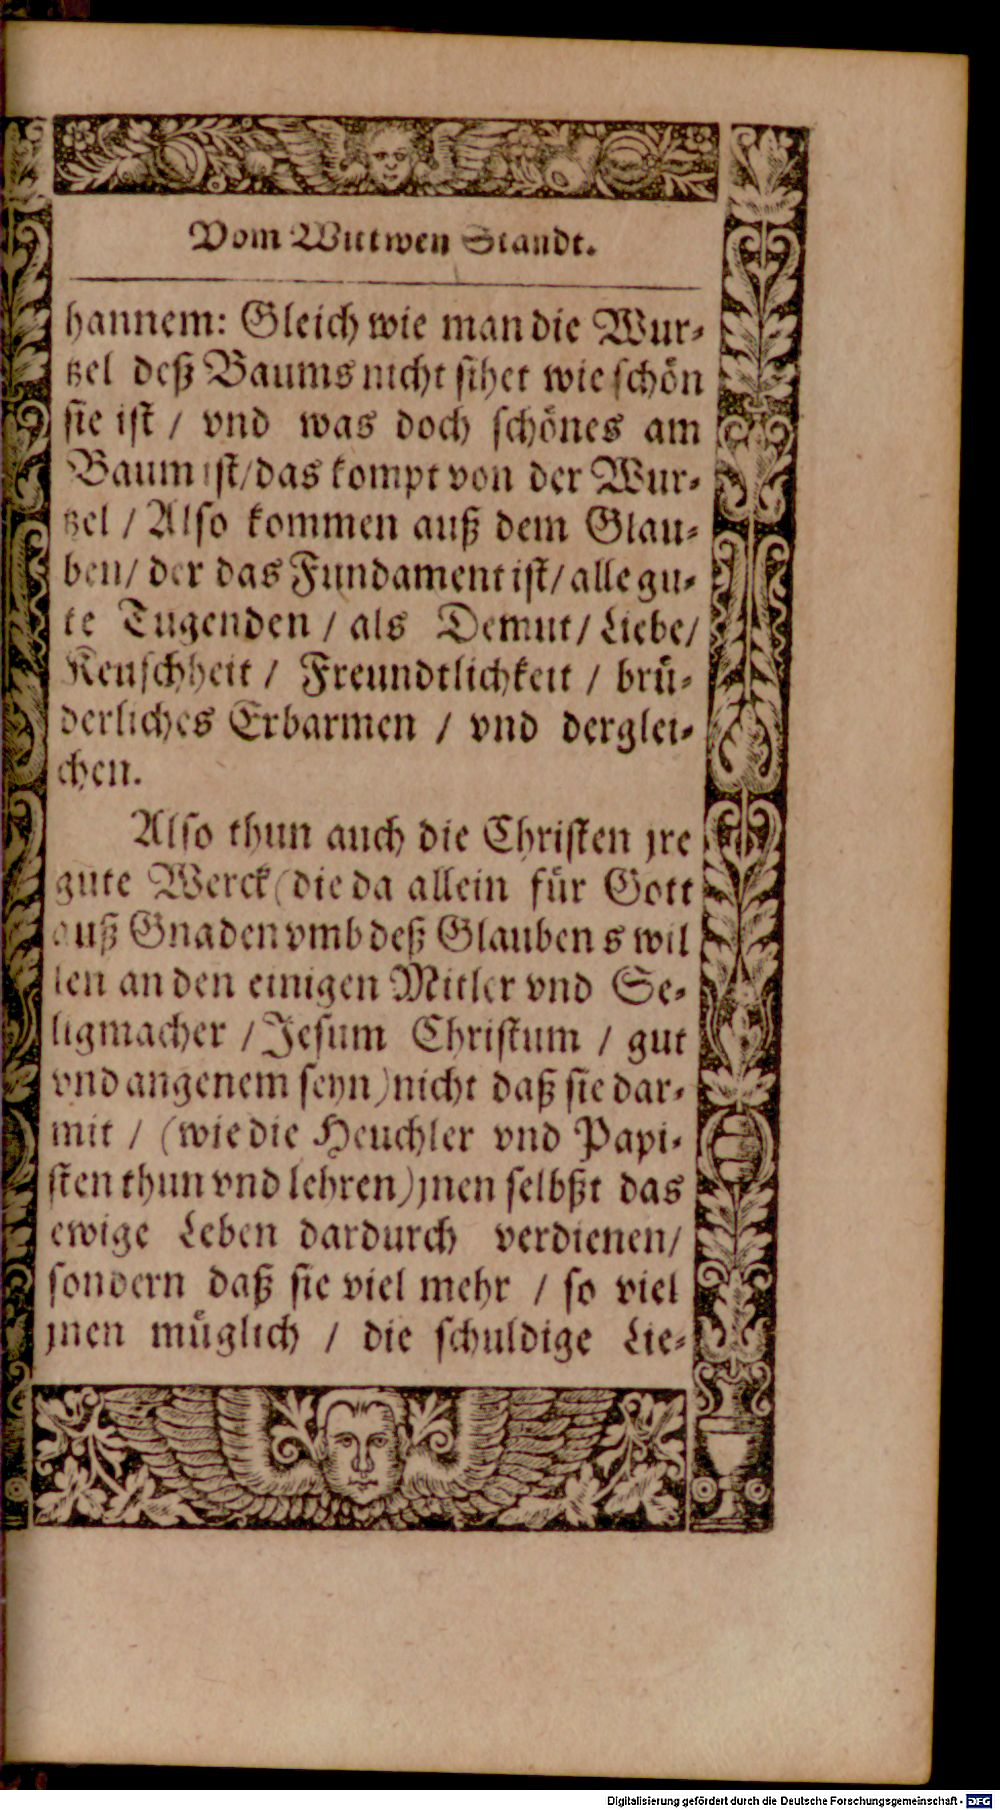 Vom Wittwen Standt.
hannem: Gleich wie man die Wur-
tzel deß Baums nicht sihet wie schön
sie ist / vnd was doch schönes am
Baum ist/das kompt von der Wur-
tzel / Also kommen auß dem Glau-
ben/ der das Fundament ist/ alle gu-
te Tugenden / als Demut/ Liebe/
Keuschheit / Freundtlichkeit / brů-
derliches Erbarmen / vnd derglei-
chen.
Also thun auch die Christen jre
gute Werck (die da allein für Gott
auß Gnaden vmb deß Glaubens wil
len an den einigen Mitler vnd Se-
ligmacher / Jesum Christum / gut
vnd angenem seyn) nicht daß sie dar-
mit / (wie die Heuchler vnd Papi-
sten thun vnd lehren) jnen selbßt das
ewige Leben dardurch verdienen/
sondern daß sie viel mehr / so viel
jnen můglich / die schuldige Lie-
Digitalisierung gefördert durch die Deutsche Forschungsgemeinschaft - DFG